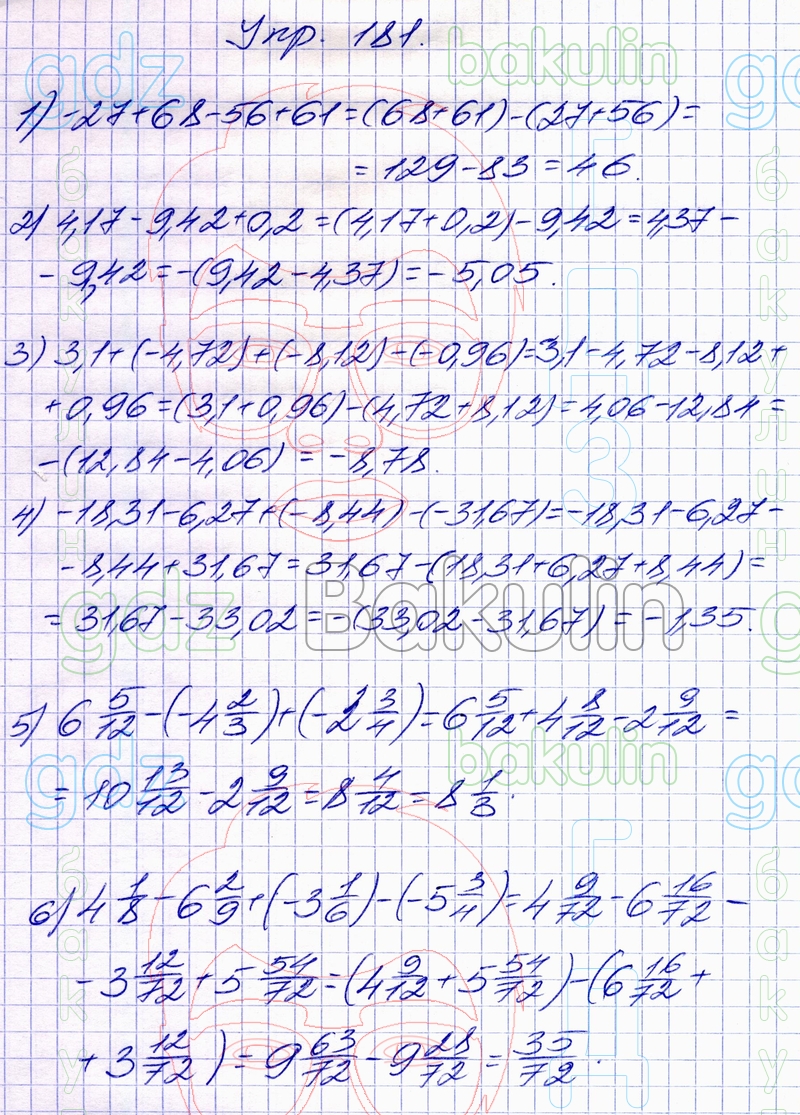 Упр. 181.
1) -27+68-56+61=(68+61)-(27+56)=
= 129-83=46.
2) 4,17-9,42+0,2=(4,17+0,2)-9,42=4,37-
- 9,42=-(9,42-4,37)=-5,05.
3) 3,1+(-4,72)+(-8,12)-(-0,96)=3,1-4,72-8,12+
+0,96=(3,1+0,96)-(4,72+8,12)=4,06-12,84=
-(12,84-4,06) = -8,78.
4) -18,31-6,27+(-8,44)-(-31,67)=-18,31-6,27-
-8,44+31,67=31,67-(18,31+6,27+8,44)=
= 31,67-33,02=-(33,02-31,67)=-1,35.
5) 6 5/12-(-4 2/3)+(-2 3/4)=6 5/12+4 8/12-2 9/12=
= 10 13/12-2 9/12=8 4/12=8 1/3.
6) 4 1/8-6 2/9+(-3 1/6)-(-5 3/4)=4 9/72-6 16/72-
-3 12/72+5 54/72=(4 9/12+5 54/72)-(6 16/72+
+3 12/72)=9 63/72-9 28/72=35/72.
gdz
bakulin
gdz
Bakulin
gdz
bakulin
бакулин
ГДЗ